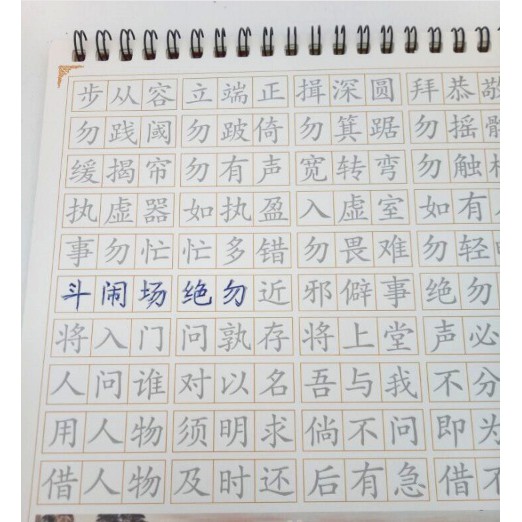 步从容 立端正 揖深圆 拜恭敬
勿践阈 勿跛倚 勿箕踞 勿摇
缓揭帘 勿有声 宽转弯 勿触
执虚器 如执盈 入虚室 如有
事勿忙 忙多错 勿畏难 勿轻
斗闹场 绝勿近 邪僻事 绝勿
将入门 问孰存 将上堂 声必
人问谁 对以名 吾与我 不分
用人物 须明求 倘不问 即为
借人物 及时还 后有急 借不